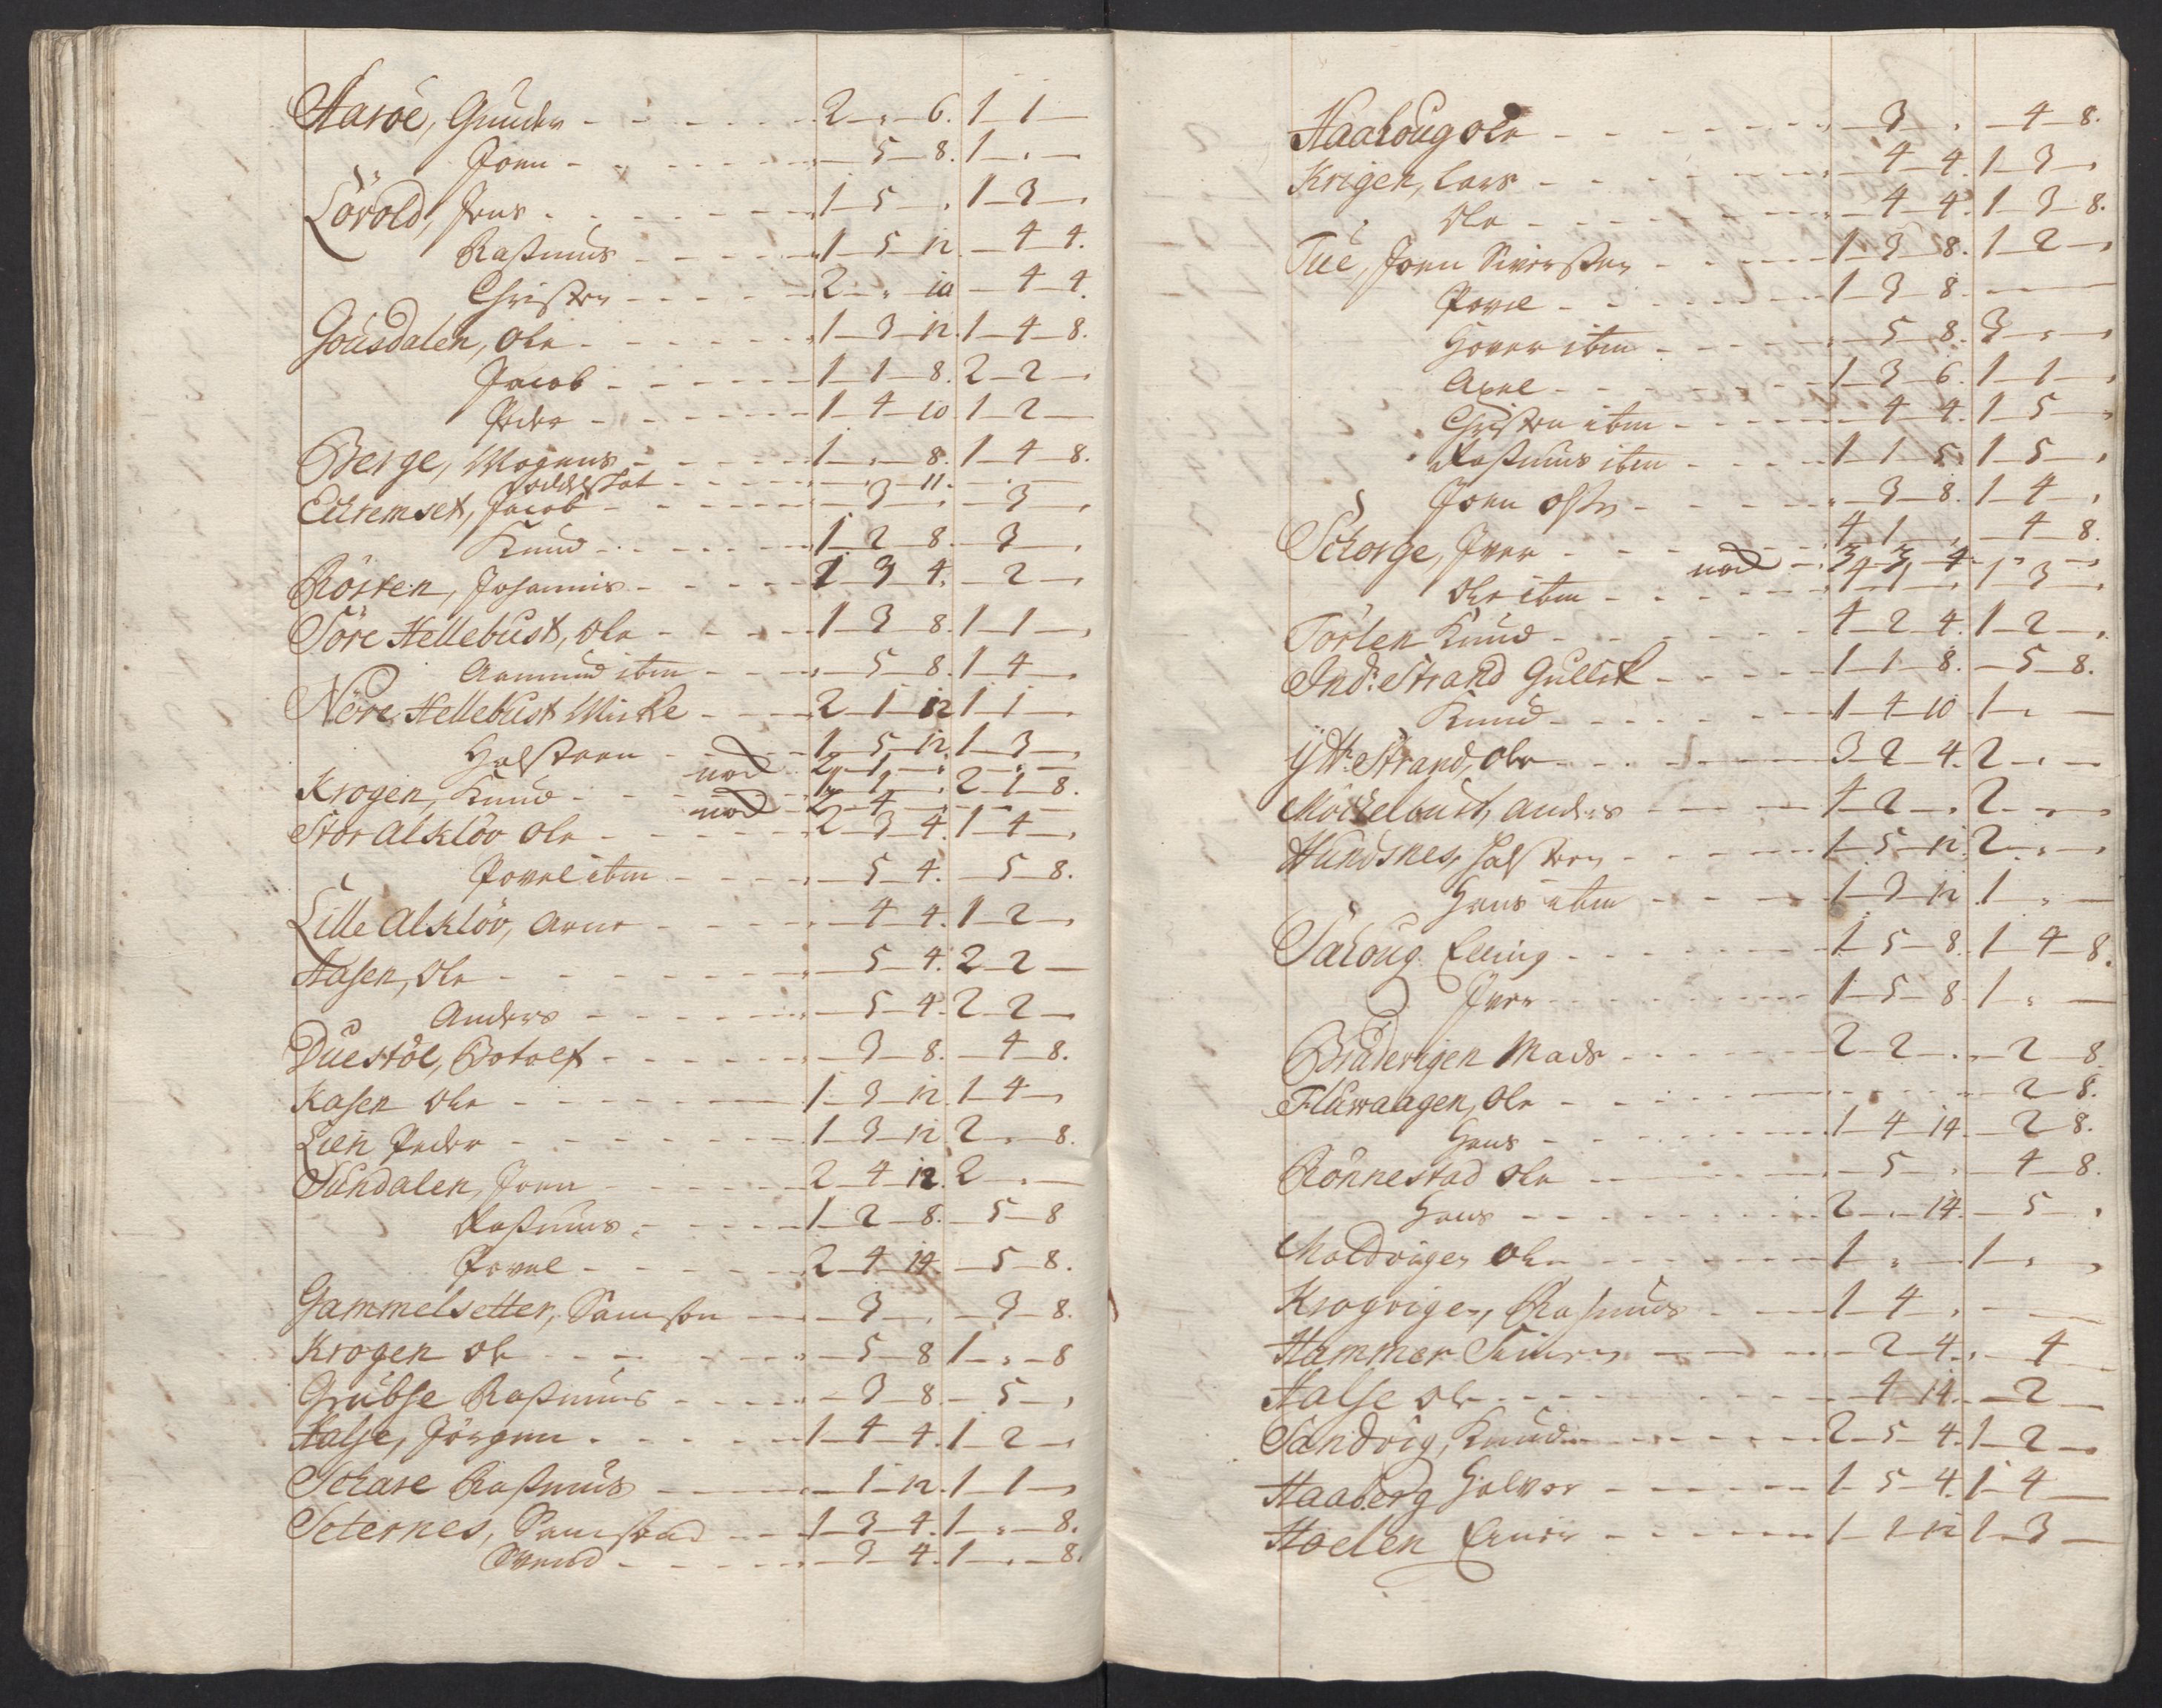 Haröe, Gunder - - - - - 2 - „ - 6. 1 - 1 -
Joen - - - - - „ - 5 - 8. 1 - „ -
Lövold, Jens - - - - - 1 - 5 - „ 1 - 3 - „
Rasmus - - - - - 1 - 5 - 12 - 4 - 4.
Christen - - - - - 2 - „ - 10 - 4 - 4.
Gousdalen, Ole - - - - - 1 - 3 - 12. 1 - 4 - 8.
Jacob - - - - - 1 - 1 - 8. 2 - 2 - „
Peder - - - - - 1 - 4 - 10. 1 - 2 -
Berge, Mogens - - - - - 1 - „ - 8. 1 - 4 - 8.
Ødestat - - - - - „ - 11.
Eckremset, Jacob - - - - - 3 - „ - 3 - „
Knud - - - - - 1 - 2 - 8. - 3 - „
Rösten, Johannis - - - - - 1 - 3 - 4. - 2 - „
Söre Hellebust, Ole - - - - 1 - 3 - 8. 1 - 1 - „
Aamund ibm - - - - „ - 5 - 8. 1 - 4 - „
Nöre Hellebust Micke - - - - 2 - 1 - 12 1 - 1 -
Halsteen - - 1 - 5 - 12. 1 - 3 - „
nod - 2 - 1 - „ - „ -
Krogen, Knud - - - 1 - 1 - „ 2 - 1 - 8.
nod - 2 - 4 -
Stor Alklöv Ole - - - - - 2 - 3 - 4. 1 - 4 - „
Povel ibm - - - - „ - 5 - 4. - 5 - 8.
Lille Alklöv, Arne - - - - „ - 4 - 4. 1 - 2 - „
Aasen, Ole - - - - - „ - 5 - 4. 2 - 2 -
Anders - - - - - „ - 5 - 4. 2 - 2 - „
Duestöl, Botolf - - - - - „ - 3 - 8. - 4 - 8.
Kasen Ole - - - - - 1 - 3 - 12. 1 - 4 - „
Lien Peder - - - - - 1 - 3 - 12 2 - „ - 8.
Sundalen, Joen - - - - - 2 - 4 - 12. 2 - „ -
Rasmus - - - - - 1 - 2 - 8. - 5 - 8
Povel - - - - - 2 - 4 - 14. - 5 - 8.
Gammelsetter, Samson - - - 3 - „ - 3 - 8.
Krogen Ole - - - - - „ - 5 - 8 1 - „ - 8
Grubse Rasmus - - - - - 3 - 8. - 5 - „
Halse, Jörgen - - - - - 1 - 4 - 4. 1 - 2 - „
Schare Rasmus - - - - 1 - 12. 1 - 1 - „
Seternes, Samsead - - 1 - 3 - 4. 1 - „ - 8.
Svend - - - - - „ - 3 - 4. 1 - „ - 8.
Haahoug Ole - - - - - „ - 3 - „ - 4 - 8.
Krigen, Lars - - - - - „ - 4 - 4. 1 - 3 - „
Ole - - - - - „ - 4 - 4. 1 - 3 - 8.
Tue, Joen Siversen - - - - 1 - 3 - 8. 1 - 2 - „
Povel - - - - - 1 - 3 - 8. - - -
Hover ibm - - - - „ - 5 - 8. 3 - „ - „
Axel - - - - - 1 - 3 - 6. 1 - 1 - „
Christen ibm - - - - „ - 4 - 4. 1 - 5 - „
Rasmus ibm - - - - 1 - 1 - 5. 1 - 5 - „
Joen Olsen - - - - - „ - 3 - 8. 1 - 4 - „
Schorge, Iver - - - - 4 - 1 - „ - 4 - 8.
nod - 3 - 3 - 4. - „ - „
Ole ibm - - - - - 4 - 1 - „ 1 - 3 - „
Torlen Knud - - - - - 4 - 2 - 4. 1 - 2 - „
Ind: Strand Gullik - - - - 1 - 1 - 8. - 5 - 8.
Knud - - - - - 1 - 4 - 10 1 - „ -
Ytt: Strand, Ole - - - - 3 - 2 - 4. 2 - „ - „
Möckelbust, Anders - - - 4 - 2 - „ 2 - „ - „
Hundsnes, Halsten - - - - 1 - 5 - 12. 2 - „ - „
Hans ibm - - - - 1 - 3 - 12 1 - „ -
Sahoug Elling - - - - - 1 - 5 - 8. 1 - 4 - 8.
Iver - - - - - 1 - 5 - 8. 1 - „ -
Brudevigen Mads - - - - - 2 - 2 - „ - 2 - 8.
Fluwaagen, Ole - - - - - - 2 - 8.
Hans - - - - - 1 - 4 - 14. - 2 - 8.
Rönnestad Ole - - - - - 5 - „ - 4 - 8.
Hans - - - - - 2 - „ - 14. - 5 - „
Moldvigen Ole - - - - - 1 - „ - 1 - „ - „
Krogvigen, Rasmus - - - 1 - 4 - „ - -
Hammer Simen - - - 2 - 4. „ - 4 -
Halse Ole - - - - - 4 - 14. - 2 -
Sandvig, Knud - - - - - 2 - 5 - 4. 1 - 2 -
Haaberg Halvor - - - - - 1 - 5 - 4. 1 - 4 -
Hoelen - - - - - 1 - 1 - 12 1 - 3 -